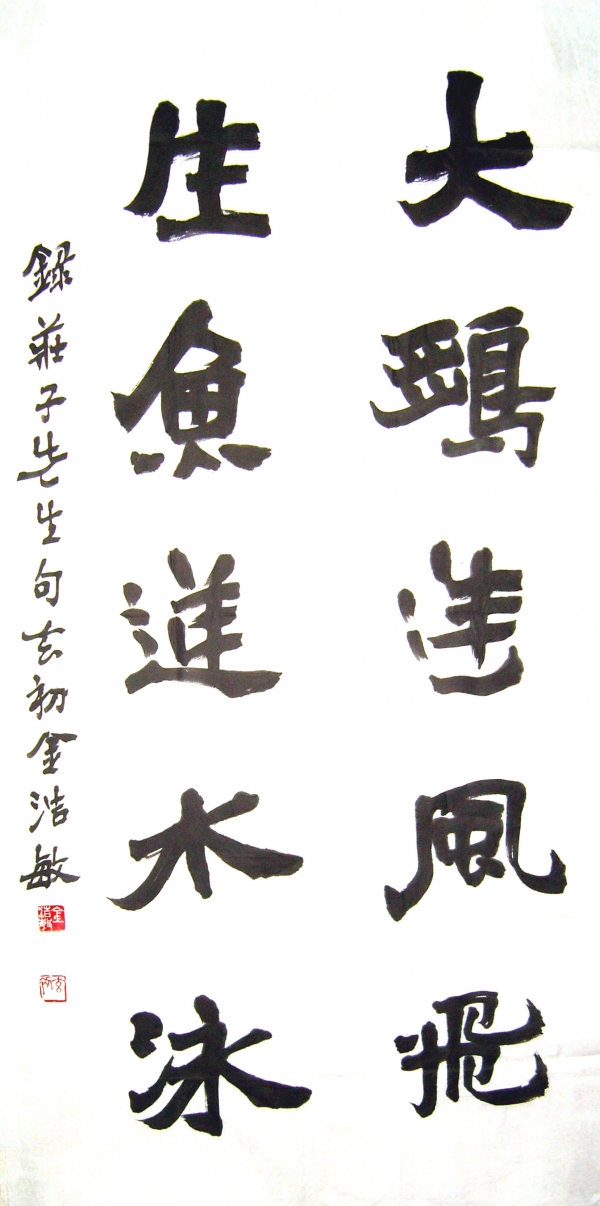 大鵬逆風飛
生魚逆水泳
錄莊子先生句玄初金浩敏
金浩敏